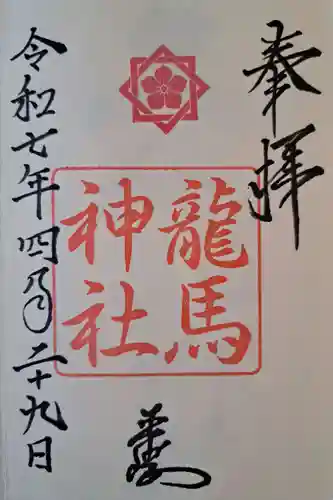 奉拝
龍馬
神社
令和七年四月二十九日